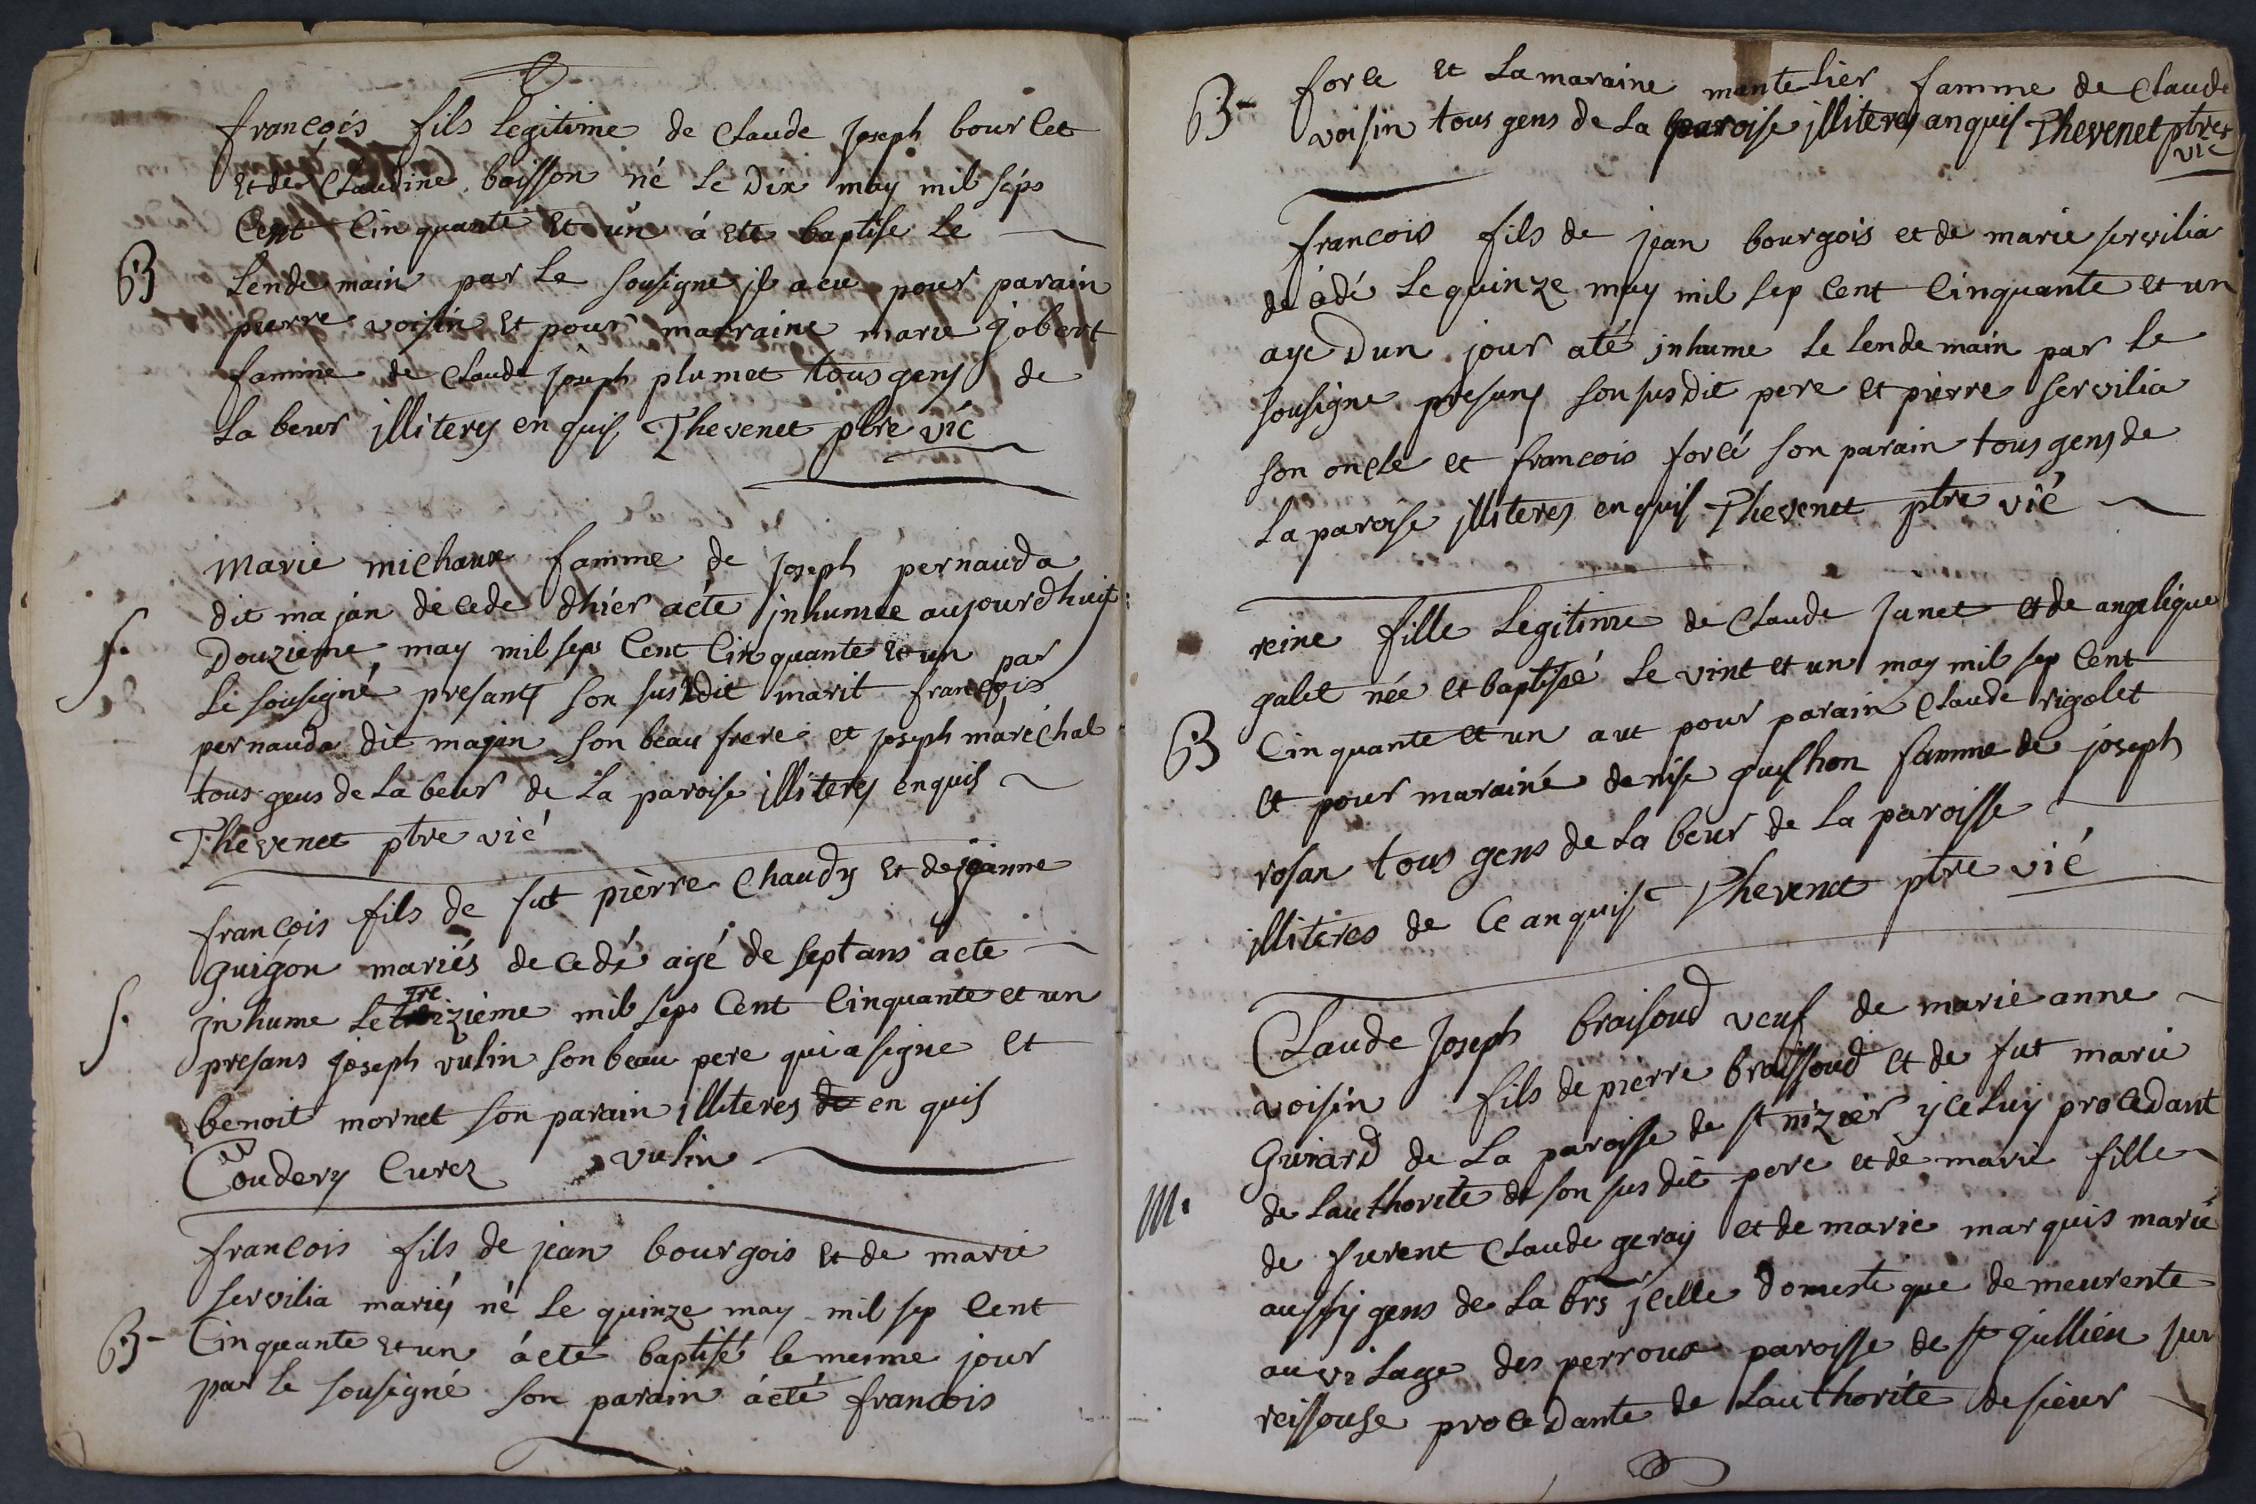 françois fils legitime de claude joseph bourlet
et de claudine boisson né le dix may mil seps
cent cinquante et un á ette baptise le
B lendemain par le sousigne il a eu pour parain
pierre voisin et pour marraine marie jobert
famme de claude joseph plumet tous gens de
labeur illiteres enquis Thevenet ptre vic
marie michaux famme de joseph pernauda
dit majan decede dhier a éte inhumee aujourdhuit
S. Douzieme may mil seps cent cinquante et un par
le sousigné presants son susdit marit françois
pernauda dit majan son beau frere et joseph maréchal
tous gens de labeur de la paroise illiteres enquis
Thevenet ptre vic
françois fils de fut pièrre chaudy et de jeanne
guigon mariés decedé agé de sept ans a ete
S. inhume le treizième mil seps cent cinquante et un
presans joseph vulin son beau pere qui a signe et
benoit mornet son parain illiteres de enquis
Coudery curez vulin
francois fils de jean bourgois et de marie
servilia mariés né le quinze may mil sep cent
B- cinquante et un á eté baptisé le mesme jour
par le sousigné son parain á eté francois
B- force et la maraine mantelier famme de claude
voisin tous gens de la paroise illiteres anquis Thevenet ptre
vic
francois fils de jean bourgois et de marie servilia
décédé le quinze may mil sep cent cinquante et un
aye dun jour a té inhume le lendemain par le
sousigne presans son susdit pere et pierre servilia
son oncle et francois forcé son parain tous gens de
la paroise illiteres enquis Thevenet ptre vic
reine fille legitime de claude junet et de angelique
galet née et baptisé le vint et un may mil sep cent
B cinquante et un a ut pour parain claude rigolet
et pour marainé denise guichon famme de joseph
rosan tous gens de labeur de la paroisse
illiteres de ce anquis Thevenet ptre vic
Claude joseph braisoud veuf de marie anne
voisin fils de pierre braissoud et de fut marie
Guirard de la paroisse de st nizier yceluy procedant
M. de lauthorite de son susdit pere et de marie fille
de furent claude geray et de marie marquis marié
aussy gens de labrs jcelle domestique demeurente
au vilage des perroux paroisse de st jullien sur
reissouse procedante de lauthorité de sieur